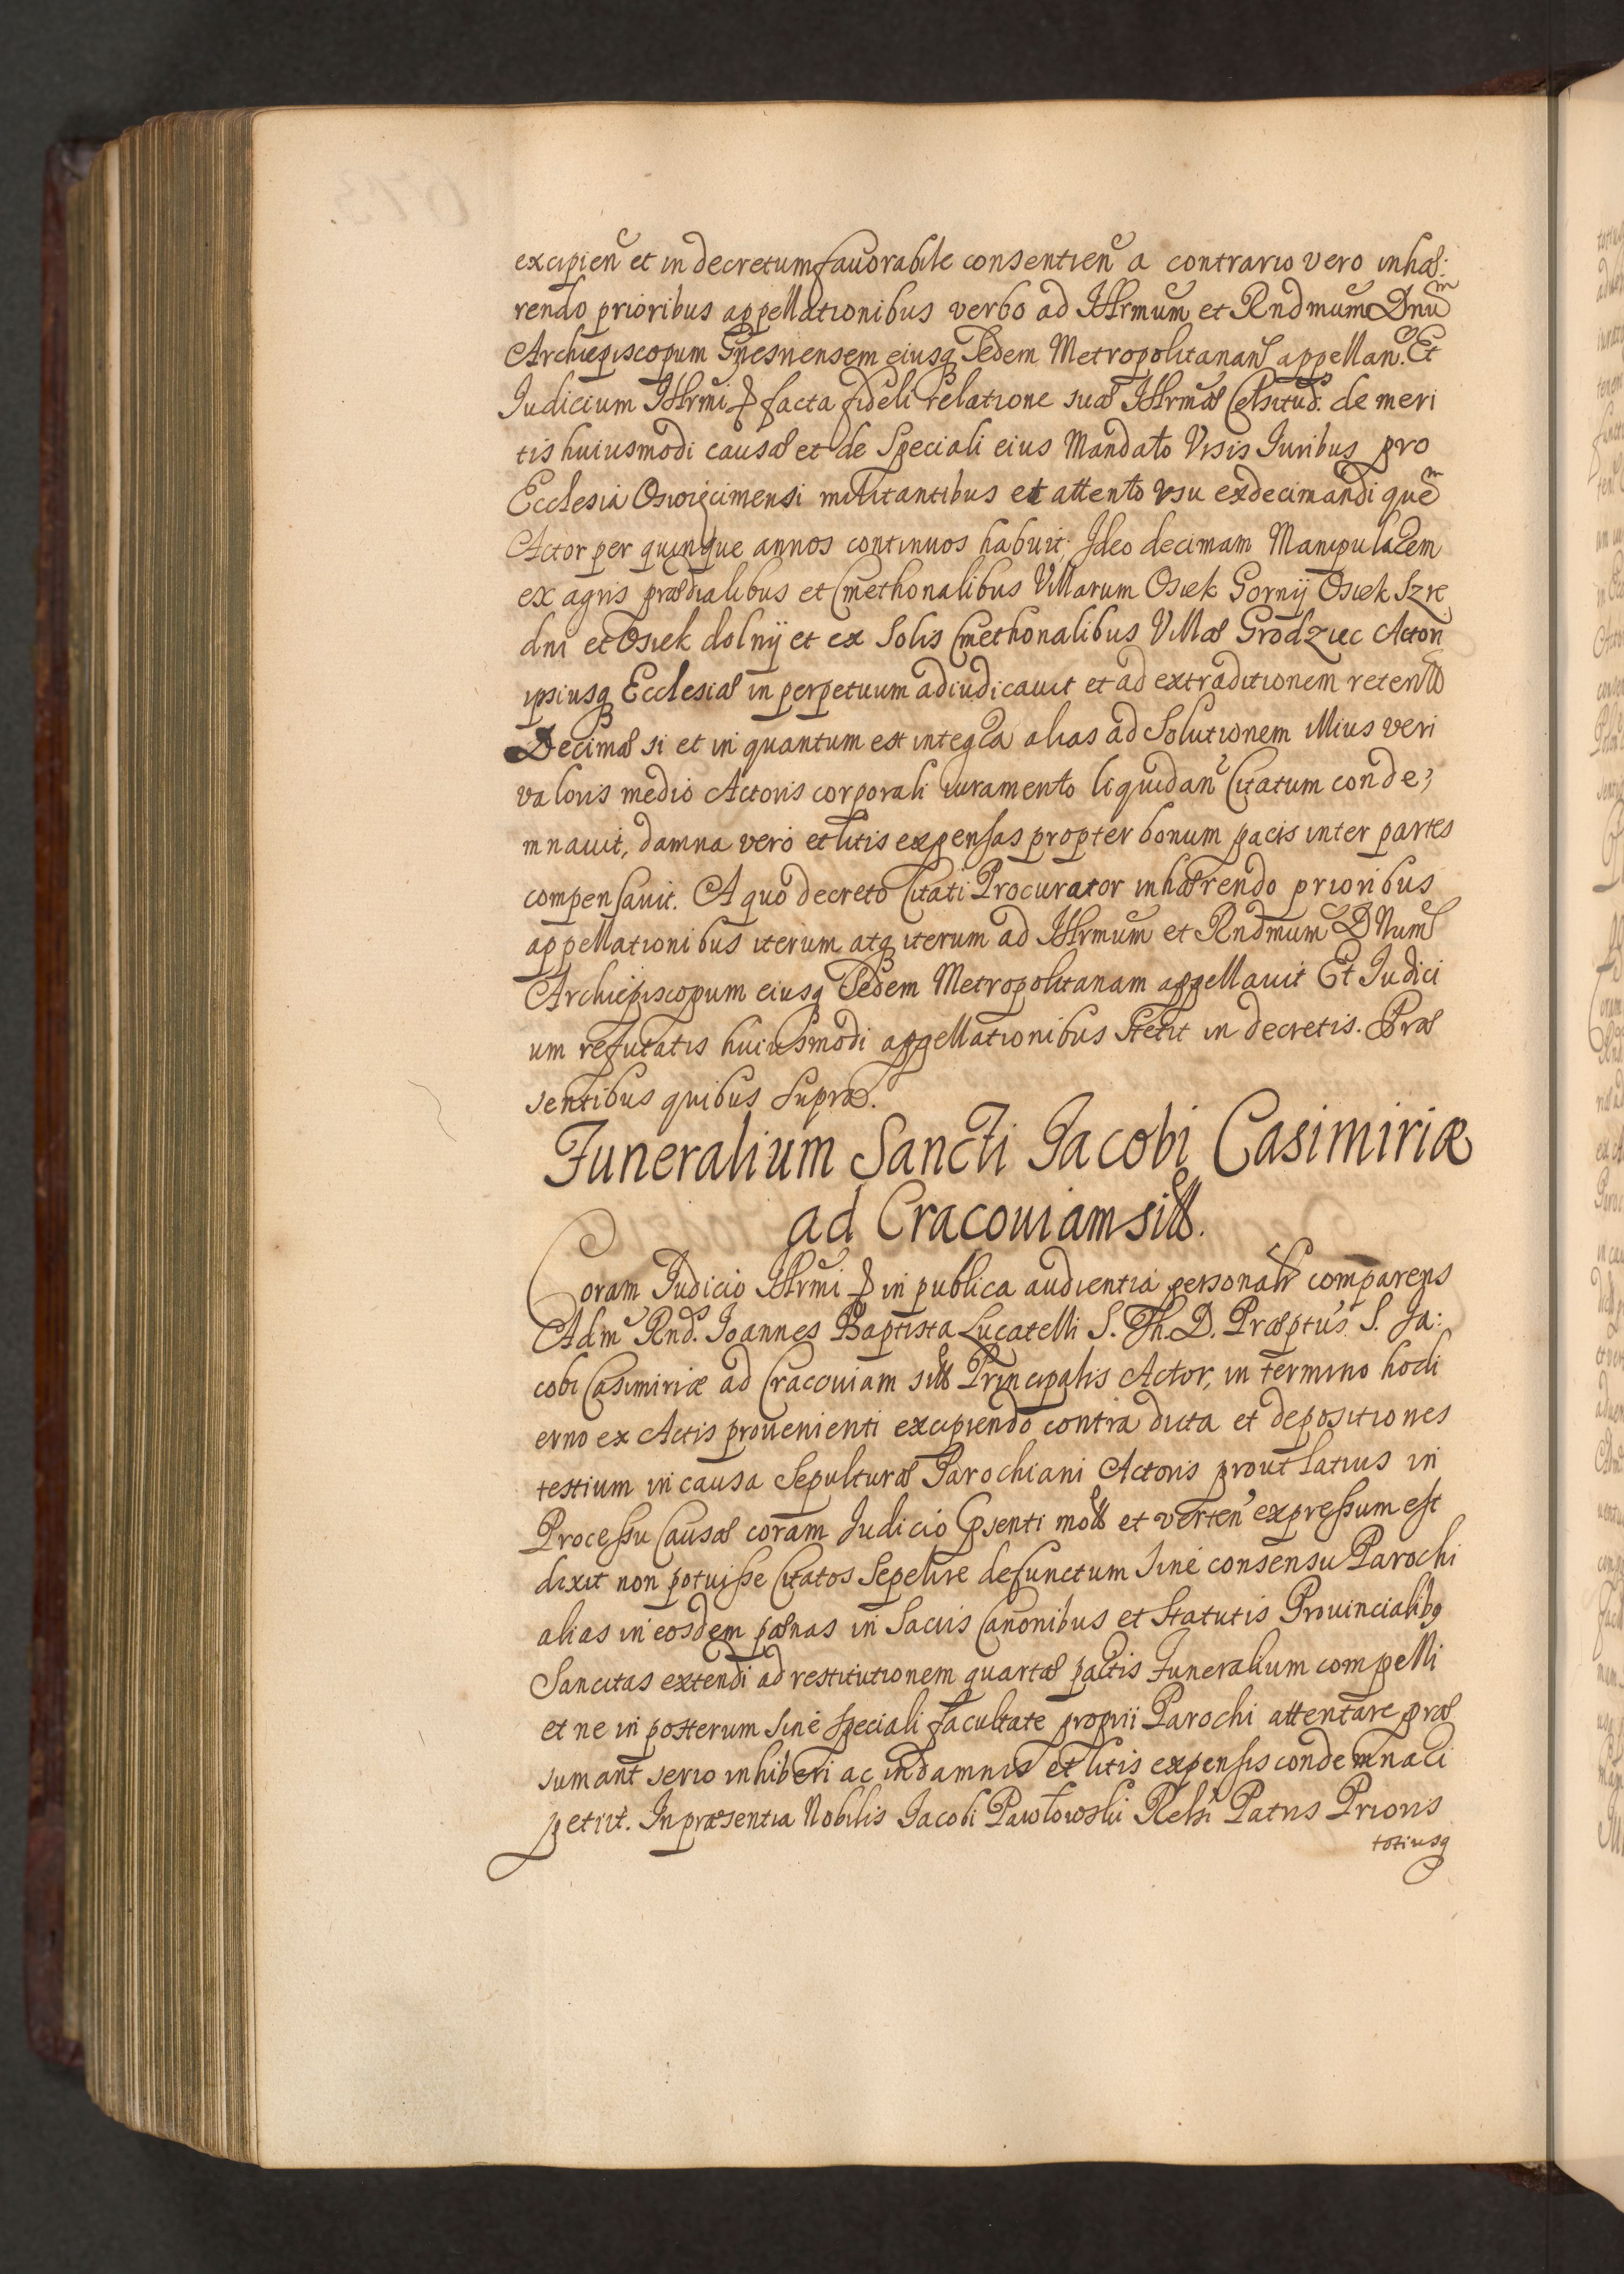 excipien et in decretum favorabile consentien a contrario vero inhæ:
rendo prioribus appellationibus verbo ad Illrmum et Rndmum Dnum
Archiepiscopum Gnesnensem eiusq Sedem Metropolitanam appellan. Et
Iudicium Illrmi & facta fideli relatione suæ Illrmæ Celsitud. de meri
tis huiusmodi causæ et de Speciali eius Mandato Visis Iuribus pro
Ecclesia Oswięcimensi militantibus et attento vsu exdecimandi quem
Actor per quinque annos continuos habuit; Ideo decimam Manipularem
ex agris prædialibus et Cmethonalibus Villarum Osiek Gornij Osiek Szre
dni et Osiek dolnij et ex Solis Cmethonalibus Villæ Grodziec Actori
ipsiusq Ecclesiæ in perpetuum adiudicauit et ad extraditionem retentæ
Decimæ si et in quantum est integra alias ad Solutionem illius veri
valoris medio Actoris corporali iuramento liquidan Citatum conde;
mnauit, damna vero et litis expensas propter bonum pacis inter partes
compensauit. A quo decreto Citati Procurator inhærendo prioribus
appellationibus iterum atq iterum ad Illrmum et Rndmum DNum
Archiepiscopum eiusq Sedem Metropolitanam appellauit Et Iudici
um refutatis huiusmodi appellationibus Stetit in decretis. Præ
sentibus quibus Supra.
Funeralium Sancti Iacobi Casimiriæ
ad Cracouiam sitæ.
Coram Iudicio Illrmi & in publica audientia personalr comparens
Adm Rnd. Ioannes Baptista Lucatelli S. Th. D. Præptus S. Ja:
cobi Casimiriæ ad Cracouiam sitæ Principalis Actor, in termino hodi
erno ex Actis prouenienti excipiendo contra dicta et depositiones
testium in causa Sepulturæ Parochiani Actoris prout latius in
Processu Causæ coram Iudicio psenti motæ et verten expressum est
dixit non potuisse Citatos Sepelire defunctum Sine consensu Parochi
alias in eosdem pœnas in Sacris Canonibus et Statutis Prouincialibq
Sancitas extendi ad restitutionem quartæ partis Funeralium compelli
et ne in posterum Sine Speciali facultate proprii Parochi attentare præ
sumant serio inhiberi ac in damnis et litis expensis condemnari
petiit. In præsentia Nobilis Iacobi Pawłowski Relsi Patris Prioris
totiusq